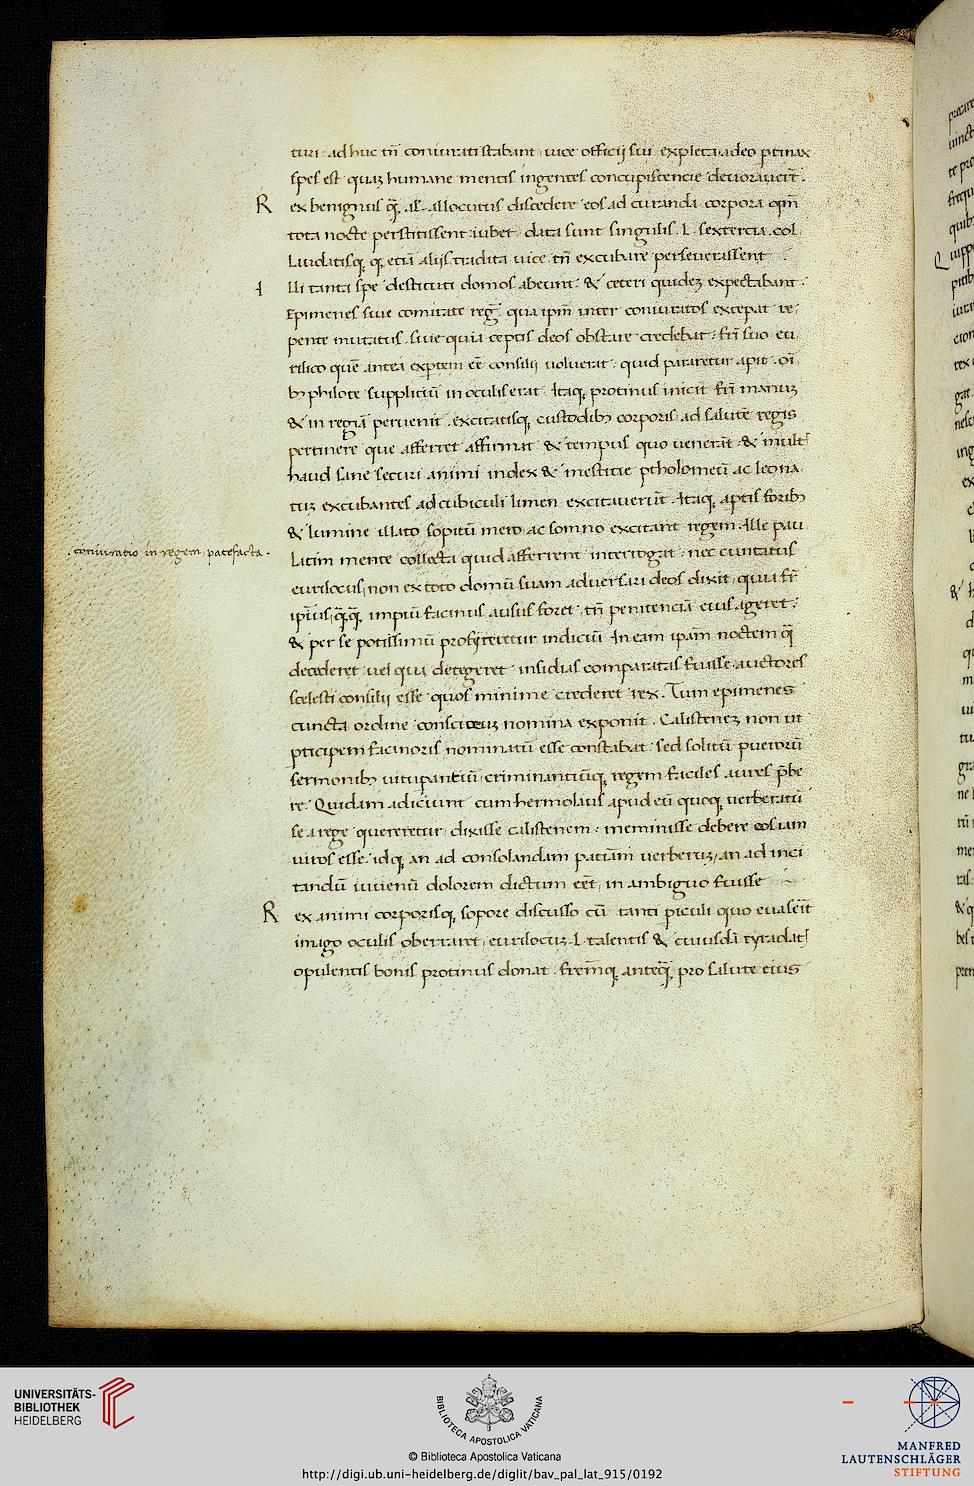 turi · adhuc tn̄ coniurati stabant · uice officij sui expleta · adeo ptinax
spes est quaȝ humane mentis ingentes concupiscencie deuorauerīt ·
R ex benignius q̄ al̄s allocutus discedere eos ad curanda corpora qm̄
tota nocte perstitissent iubet · data sunt singulis · L · sextercia · col
Laudatisq; q; etiā alijs tradita uice tn̄ excubare perseuerassent ·
I lli tanta spe destituti domos abeunt · & ceteri quidez expectabant ·
Epimenes siue comitate reḡ · qua ipm̄ inter coniuratos exceperat re
pente mutatus · siue quia ceptis deos obstare credebat · fr̄i suo eu
rilico quē antea exptem eē consilij uoluerat · quid pararetur apit · oī
bȝ philote suppliciū in oculis erat · Itaq; protinus inicit fr̄i manuȝ
& in regiā peruenit · excitatisq; custodibȝ corporis ad salutē regis
pertinere que afferret affirmat · & tempus quo uenerāt · & uult
haud sane securi animi index & mesticie ptholomeū ac leona
tuȝ excubantes ad cubiculi limen excitauerūt · Itaq; aptis foribȝ
& lumine illato sopitū mero ac somno excitant regem · Ille pau
Latim mente collecta quid afferrent interrogat · nec cunctatus
· coniuratio in regem patefacta ·
eurilocus / non ex toto domū suam aduersari deos dixit / quia fr̄
ipsius q̄q̄ impiū facinus ausus foret · tn̄ penitenciā eius ageret ·
& per se potissimū profiteretur indiciū In eam ipām noctem q̄
decederet · uel qua detegeret · insidias comparatas fuisse · auctores
scelesti consilij esse · quos minime crederet rex · Tum epimenes
cuncta ordine consciouȝ nomina exponit · Calistenez non ut
pticipem facinoris nominatū esse constabat · sed solitū puerorū
sermonibȝ uitupantiū / criminantiūq; regem faciles aures p̄be
re · Quidam adiciunt cum hermolaus apud eū quoq; uerberatū
se a rege quereretur / dixisse calistenem · meminisse debere eos iam
uiros esse · idq; an ad consolandam patiam̄ uerberuȝ / an ad inci
tandū iuuenū dolorem dictum eēt / in ambiguo fuisse
R ex animi corporisq; sopore discusso cū tanti piculi quo euaserīt
imago oculis oberraret / eurilocuȝ · L · talentis & cuiusdā tyradat
opulentis bonis protinus donat · fremq; anteq̄ pro salute eius
UNIVERSITÄTS-
BIBLIOTHEK
HEIDELBERG
BIBLIOTECA APOSTOLICA VATICANA
© Biblioteca Apostolica Vaticana
http://digi.ub.uni-heidelberg.de/diglit/bav_pal_lat_915/0192
MANFRED
LAUTENSCHLÄGER
STIFTUNG